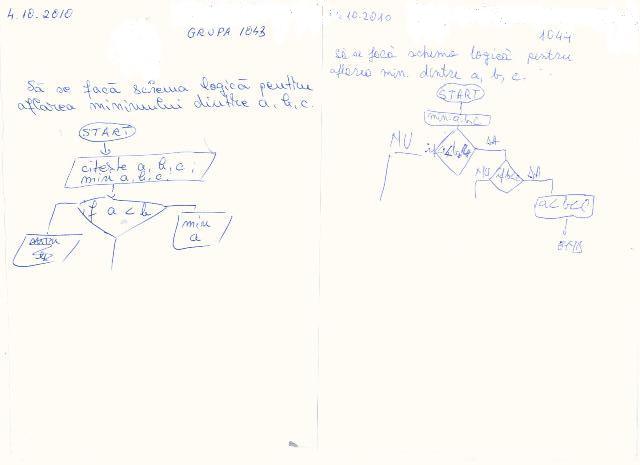 4.10.2010
GRUPA 1043
Să se facă schema logică pentru
aflarea minimului dintre a, b, c.
START
citește a, b, c;
min a, b, c.
if a < b
min
a
10.2010
1044
Să se facă schema logică pentru
aflarea min. dintre a, b, c.
START
min a,b,c
NU
DA
NU
if b<c
DA
a<b<c